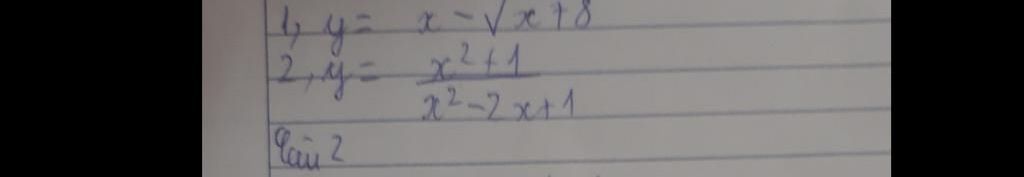 1, y = x - √x+8
2, y = x²+1 / x²-2x+1
Câu 2